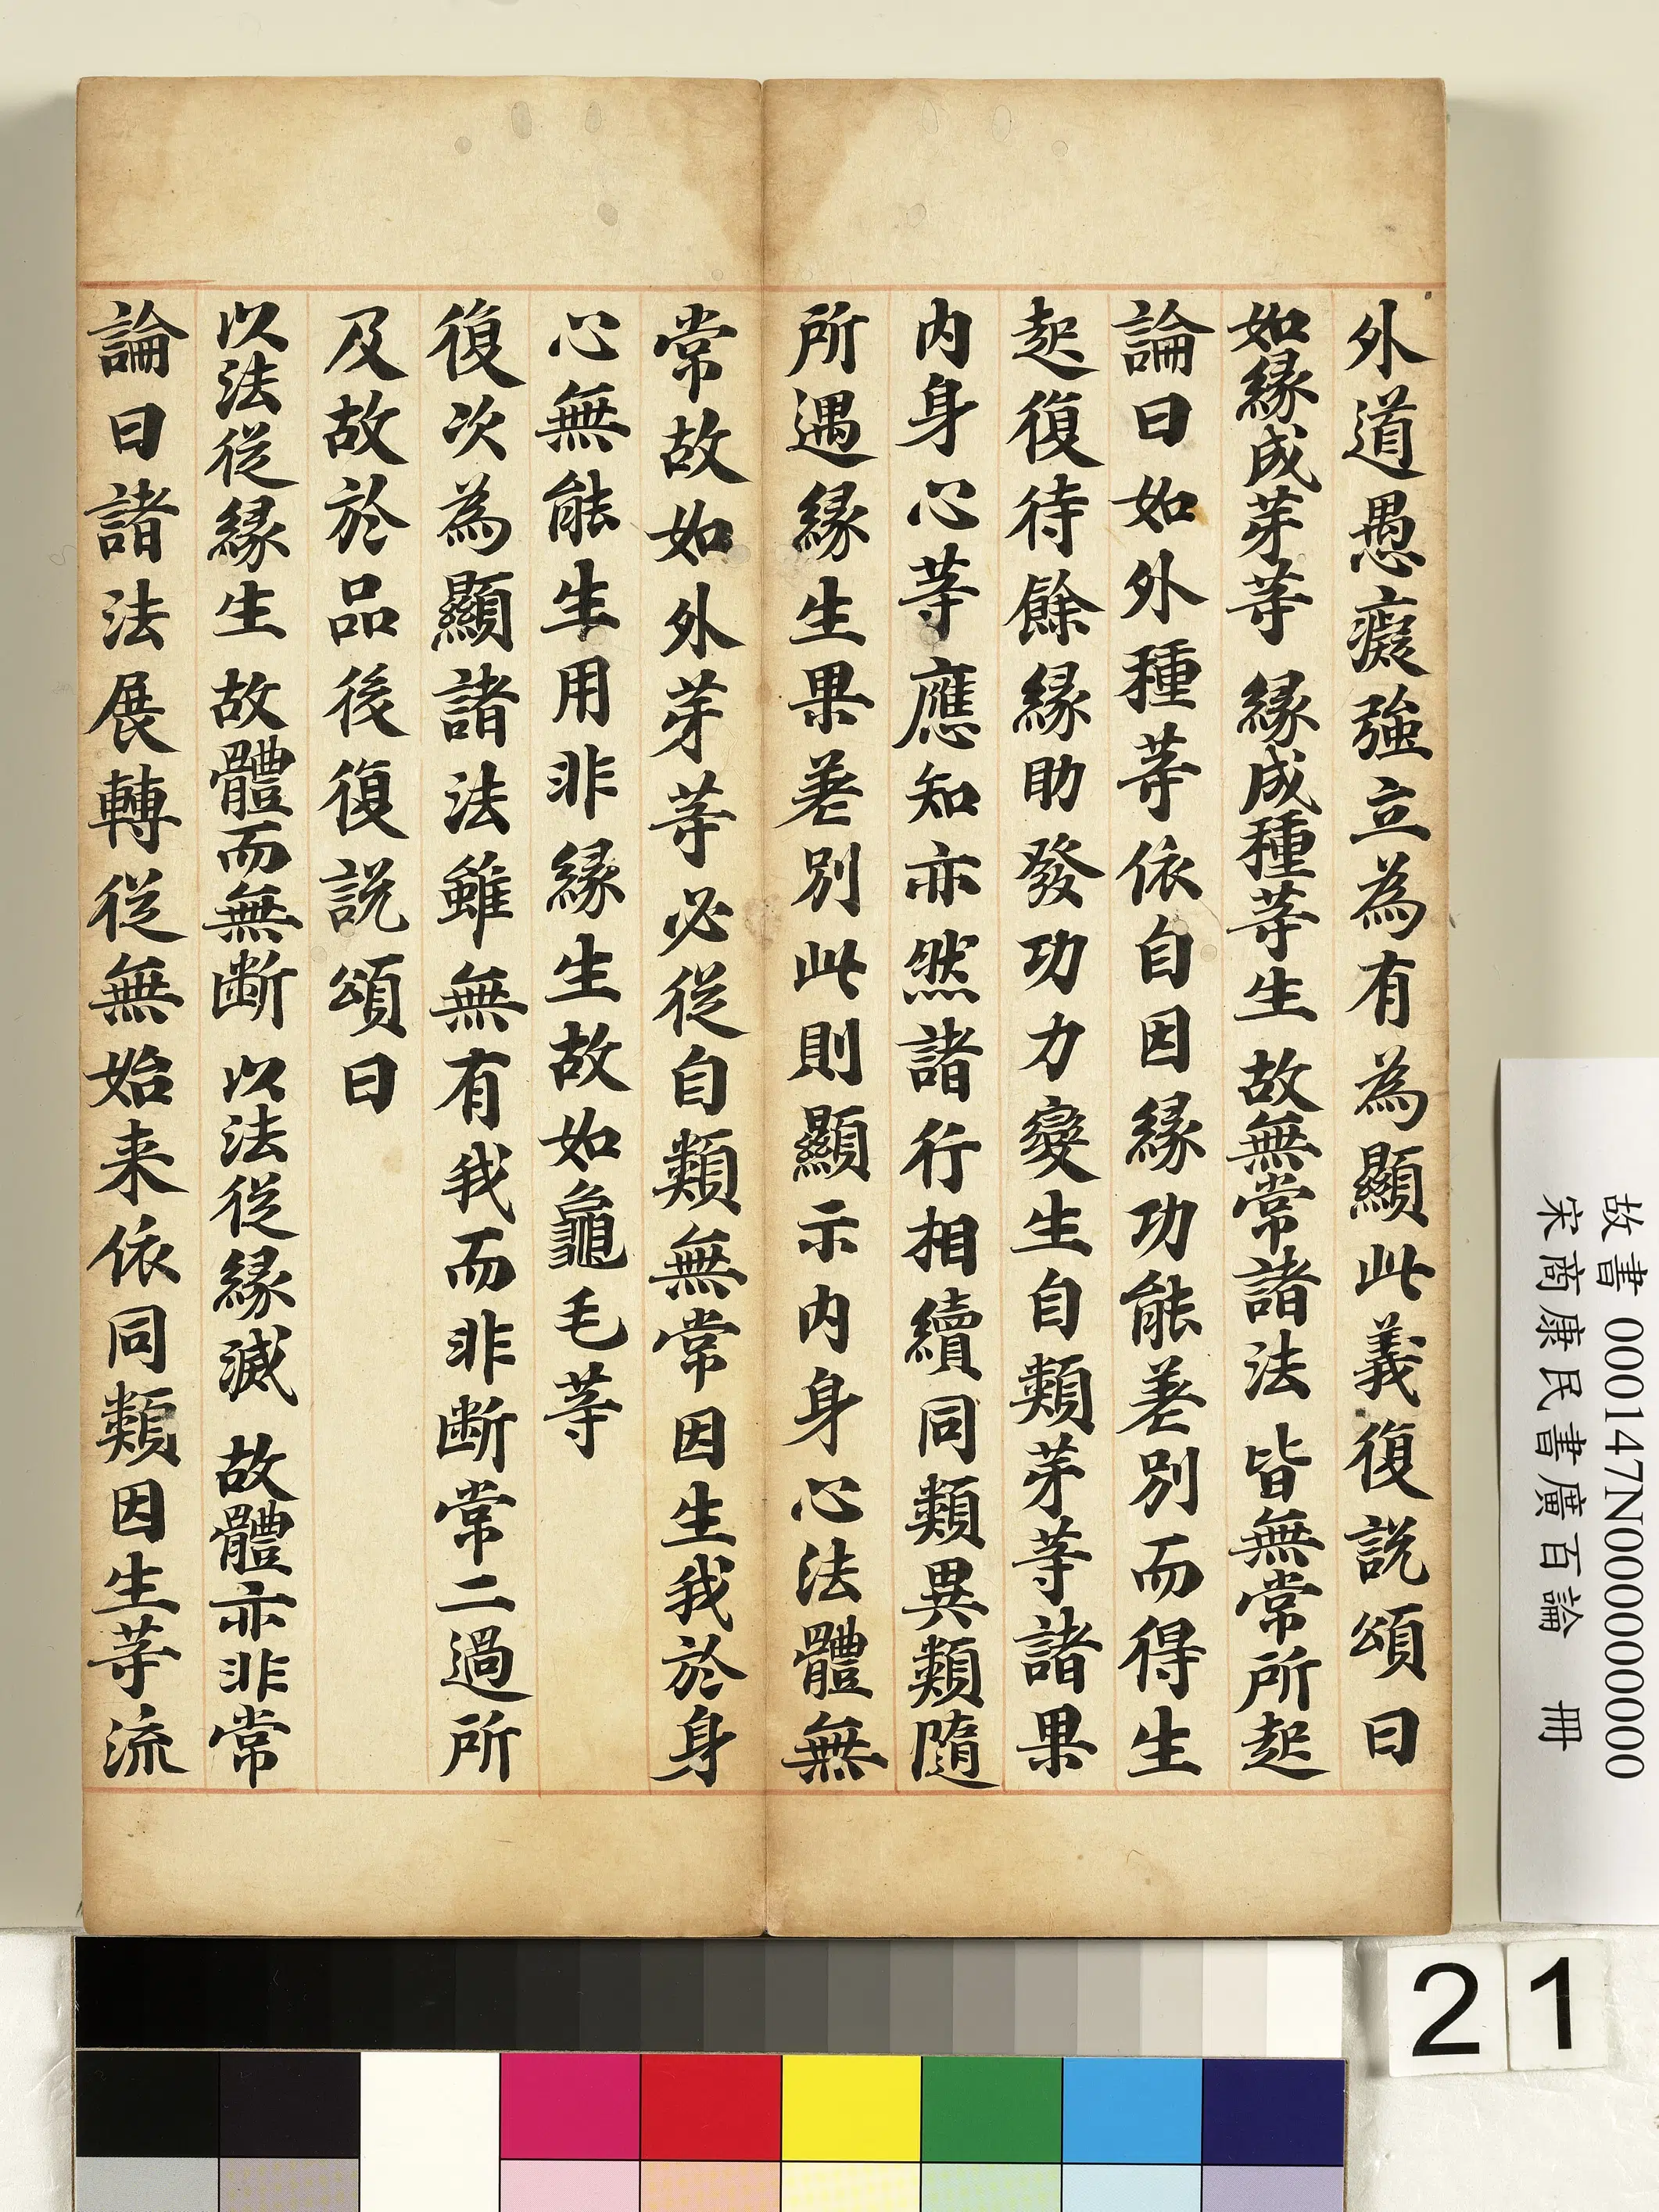 外道愚癡強立為有為顯此義復説頌曰
如緣成芽等　緣成種等生　故無常諸法　皆無常所起
論曰如外種等依自因緣功能差別而得生
起復待餘緣助發功力變生自類芽等諸果
内身心等應知亦然諸行相續同類異類隨
所遇緣生果差別此則顯示内身心法體無
常故如外芽等必從自類無常因生我於身
心無能生用非緣生故如龜毛等
復次為顯諸法雖無有我而非斷常二過所
及故於品後復説頌曰
以法從緣生　故體而無斷　以法從緣滅　故體亦非常
論曰諸法展轉從無始来依同類因生等流
故書 000147N000000000
宋商康民書廣百論　冊
21